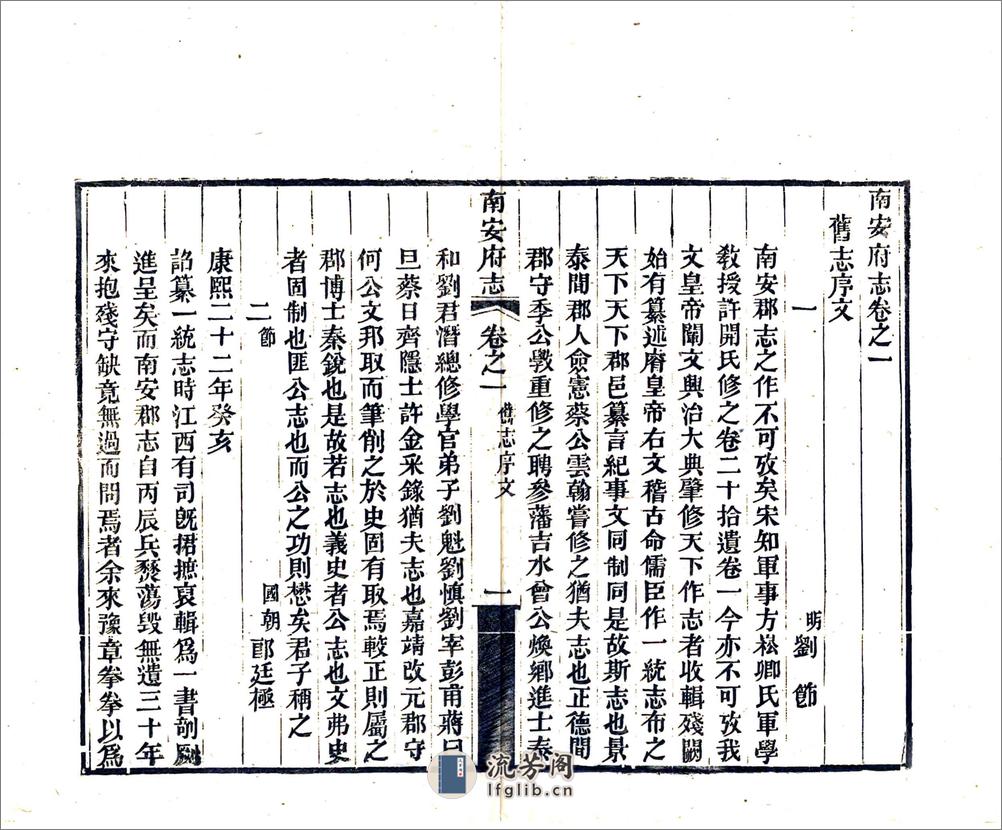 南安府志卷之一
舊志序文
一 明劉節
南安郡志之作不可攷矣宋知軍事方崧卿氏軍學
教授許開氏修之卷二十拾遺卷一今亦不可攷我
文皇帝闡文興治大典肇修天下作志者收輯殘闕
始有纂述睿皇帝右文稽古命儒臣作一統志布之
天下天下郡邑纂言紀事文同制同是故斯志也景
泰間郡人僉憲蔡公雲翰嘗修之猶夫志也正德間
郡守季公斆重修之聘參藩吉水曾公煥鄉進士泰
南安府志 卷之一 舊志序文 一
和劉君潛總修學官弟子劉魁劉慎劉宰彭甫蔣曰
旦蔡日齊隱士許金采錄猶夫志也嘉靖改元郡守
何公文邦取而筆削之於史固有取焉較正則屬之
郡博士秦銳也是故若志也義史者公志也文弗史
者固制也匪公志也而公之功則懋矣君子稱之
二節 國朝郎廷極
康熙二十二年癸亥
詔纂一統志時江西有司旣捃摭哀輯爲一書剞劂
進呈矣而南安郡志自丙辰兵燹蕩毀無遺三十年
來抱殘守缺竟無過而問焉者余來豫章拳拳以爲
流芳阁
lfglib.cn